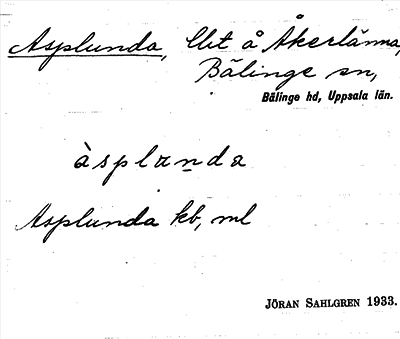 Asplunda, lht å Åkerlänna,
Bälinge sn,
Bälinge hd, Uppsala län.
àsplanda
Asplunda kb, ml
JÖRAN SAHLGREN 1933.